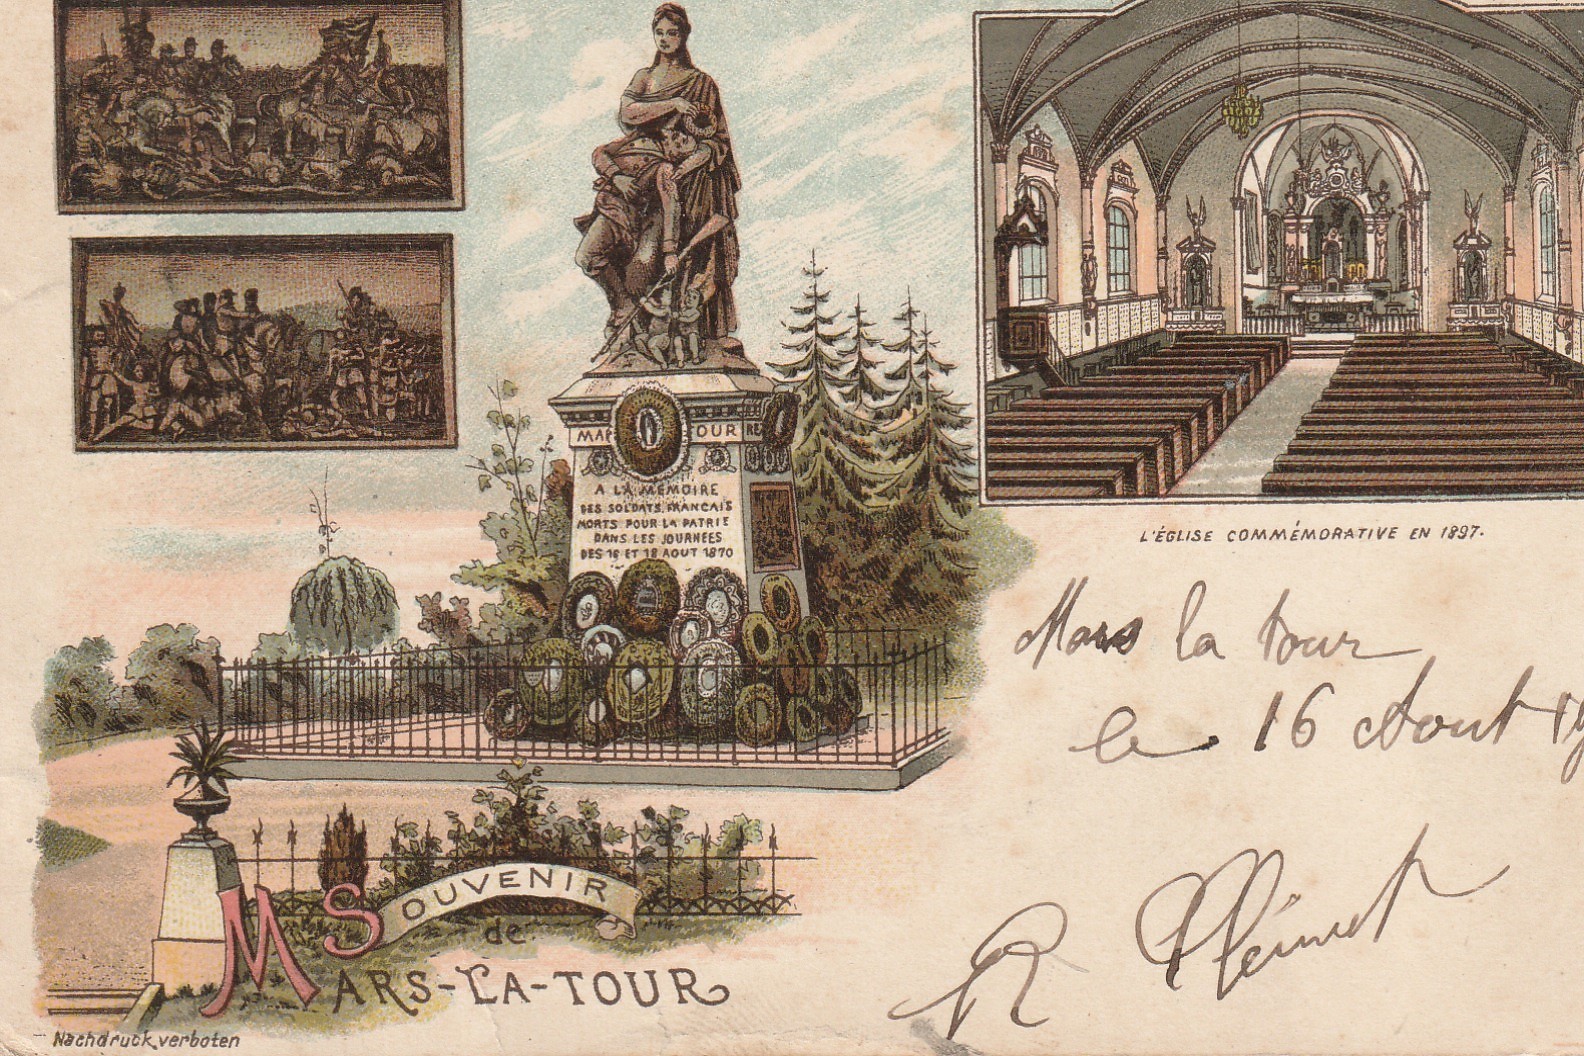 MAR OUR RE
A LA MÉMOIRE
DES SOLDATS FRANÇAIS
MORTS POUR LA PATRIE
DANS LES JOURNÉES
DES 16 ET 18 AOUT 1870
L'ÉGLISE COMMÉMORATIVE EN 1897.
Mars la tour
le 16 Aout 19
R
SOUVENIR
de
MARS-LA-TOUR
Nachdruck verboten